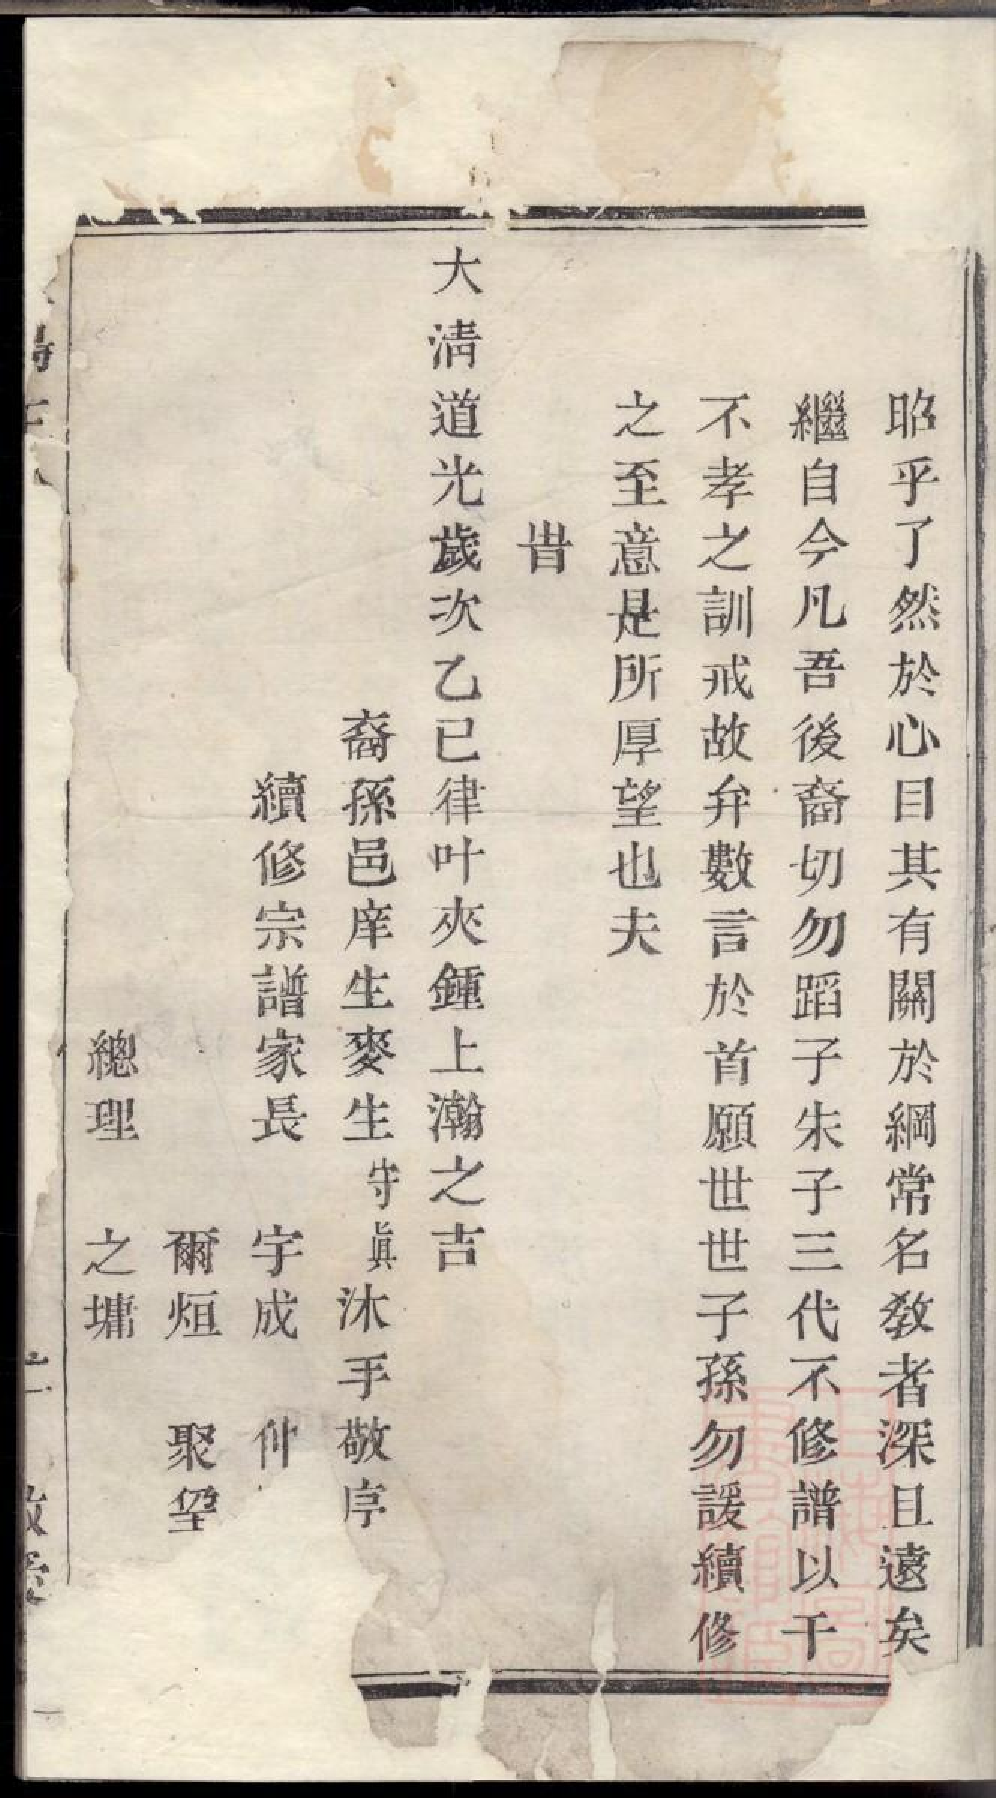 昭乎了然於心目其有關於綱常名教者深且遠矣
繼自今凡吾後裔切勿蹈子朱子三代不修譜以干
不孝之訓戒故弁數言於首願世世子孫勿諼續修
之至意是所厚望也夫
旹
大清道光歲次乙巳律叶夾鍾上瀚之吉
裔孫邑庠生麥生守眞沐手敬序
續修宗譜家長 宇成 仲
爾烜 聚
總理 之墉